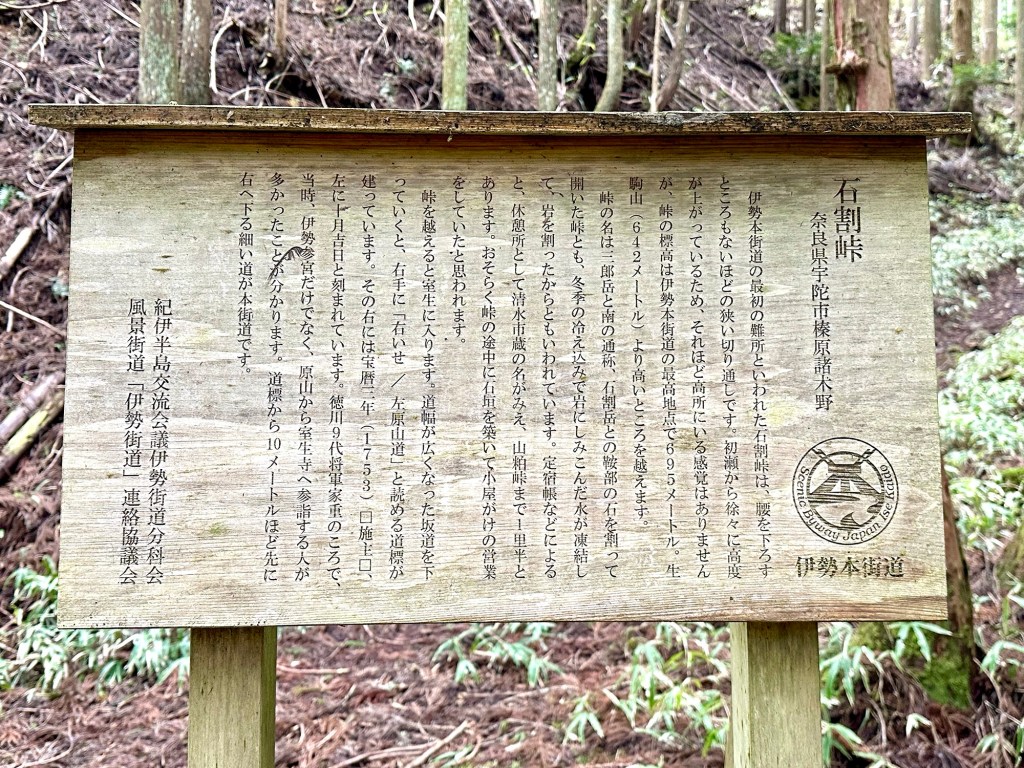 石割峠
奈良県宇陀市榛原諸木野
伊勢本街道の最初の難所といわれた石割峠は、腰を下ろす
ところもないほどの狭い切り通しです。初瀬から徐々に高度
が上がっているため、それほど高所にいる感覚はありません
が、峠の標高は伊勢本街道の最高地点で695メートル。生
駒山（642メートル）より高いところを越えます。
峠の名は三郎岳と南の通称、石割岳との鞍部の石を割って
開いた峠とも、冬季の冷え込みで岩にしみこんだ水が凍結し
て、岩を割ったからともいわれています。定宿帳などによる
と、休憩所として清水市蔵の名がみえ、山粕峠まで1里半と
あります。おそらく峠の途中に石垣を築いて小屋がけの営業
をしていたと思われます。
峠を越えると室生に入ります。道幅が広くなった坂道を下
っていくと、右手に「右いせ ／ 左原山道」と読める道標が
建っています。その右には宝暦三年（1753）□施主□、
左に十月吉日と刻まれています。徳川9代将軍家重のころで、
当時、伊勢参宮だけでなく、原山から室生寺へ参詣する人が
多かったことが分かります。道標から10メートルほど先に
右へ下る細い道が本街道です。
紀伊半島交流会議伊勢街道分科会
風景街道「伊勢街道」連絡協議会
Scenic Byway Japan Ise Kaido
伊勢本街道